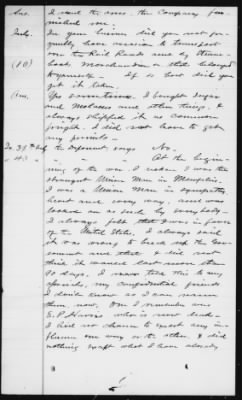 Ans. I used the ones the Company fur-
nished me.
Inty. In your business did you not fre-
quently have occasion to transport
on the Rail Roads and by Steam-
boat, Merchandise &c that belonged
to yourself - If so how did you
get it taken.
Ans. Yes sometimes I bought sugar
and Molasses and other things. I
always shipped it as common
freight. I did not have to get
any permits -
To 39th Inty the deponent says No.
" 40 " " At the begin-
ning of the war. I reckon I was the
strongest Union Man in Memphis.
I was a Union Man in sympathy
heart and every way, and was
looked on as such by everybody -
I always felt that I was in favor
of the United States. I always said
it was wrong to break up the Gov-
ernment and that I did not
think it would last more than
90 days. I never told this to my
friends, my confidential friends
I don't know as I can name
them now. One I remember was
E. P. Harris who is now dead -
I had no chance to exert any in-
fluence one way or the other. I did
nothing except what I have already